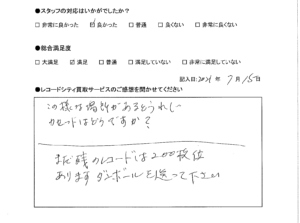 ●スタッフの対応はいかがでしたか？
□非常に良かった ☑良かった □普通 □良くない □非常に良くない
●総合満足度
□大満足 ☑満足 □普通 □満足していない □非常に満足していない
記入日:2024年 7月15日
●レコードシティ買取サービスのご感想を聞かせてください
この様な場所があるとうれしー
カセットはどうですか？
まだ残のレコードは200枚位
あります ダンボールを送って下さい